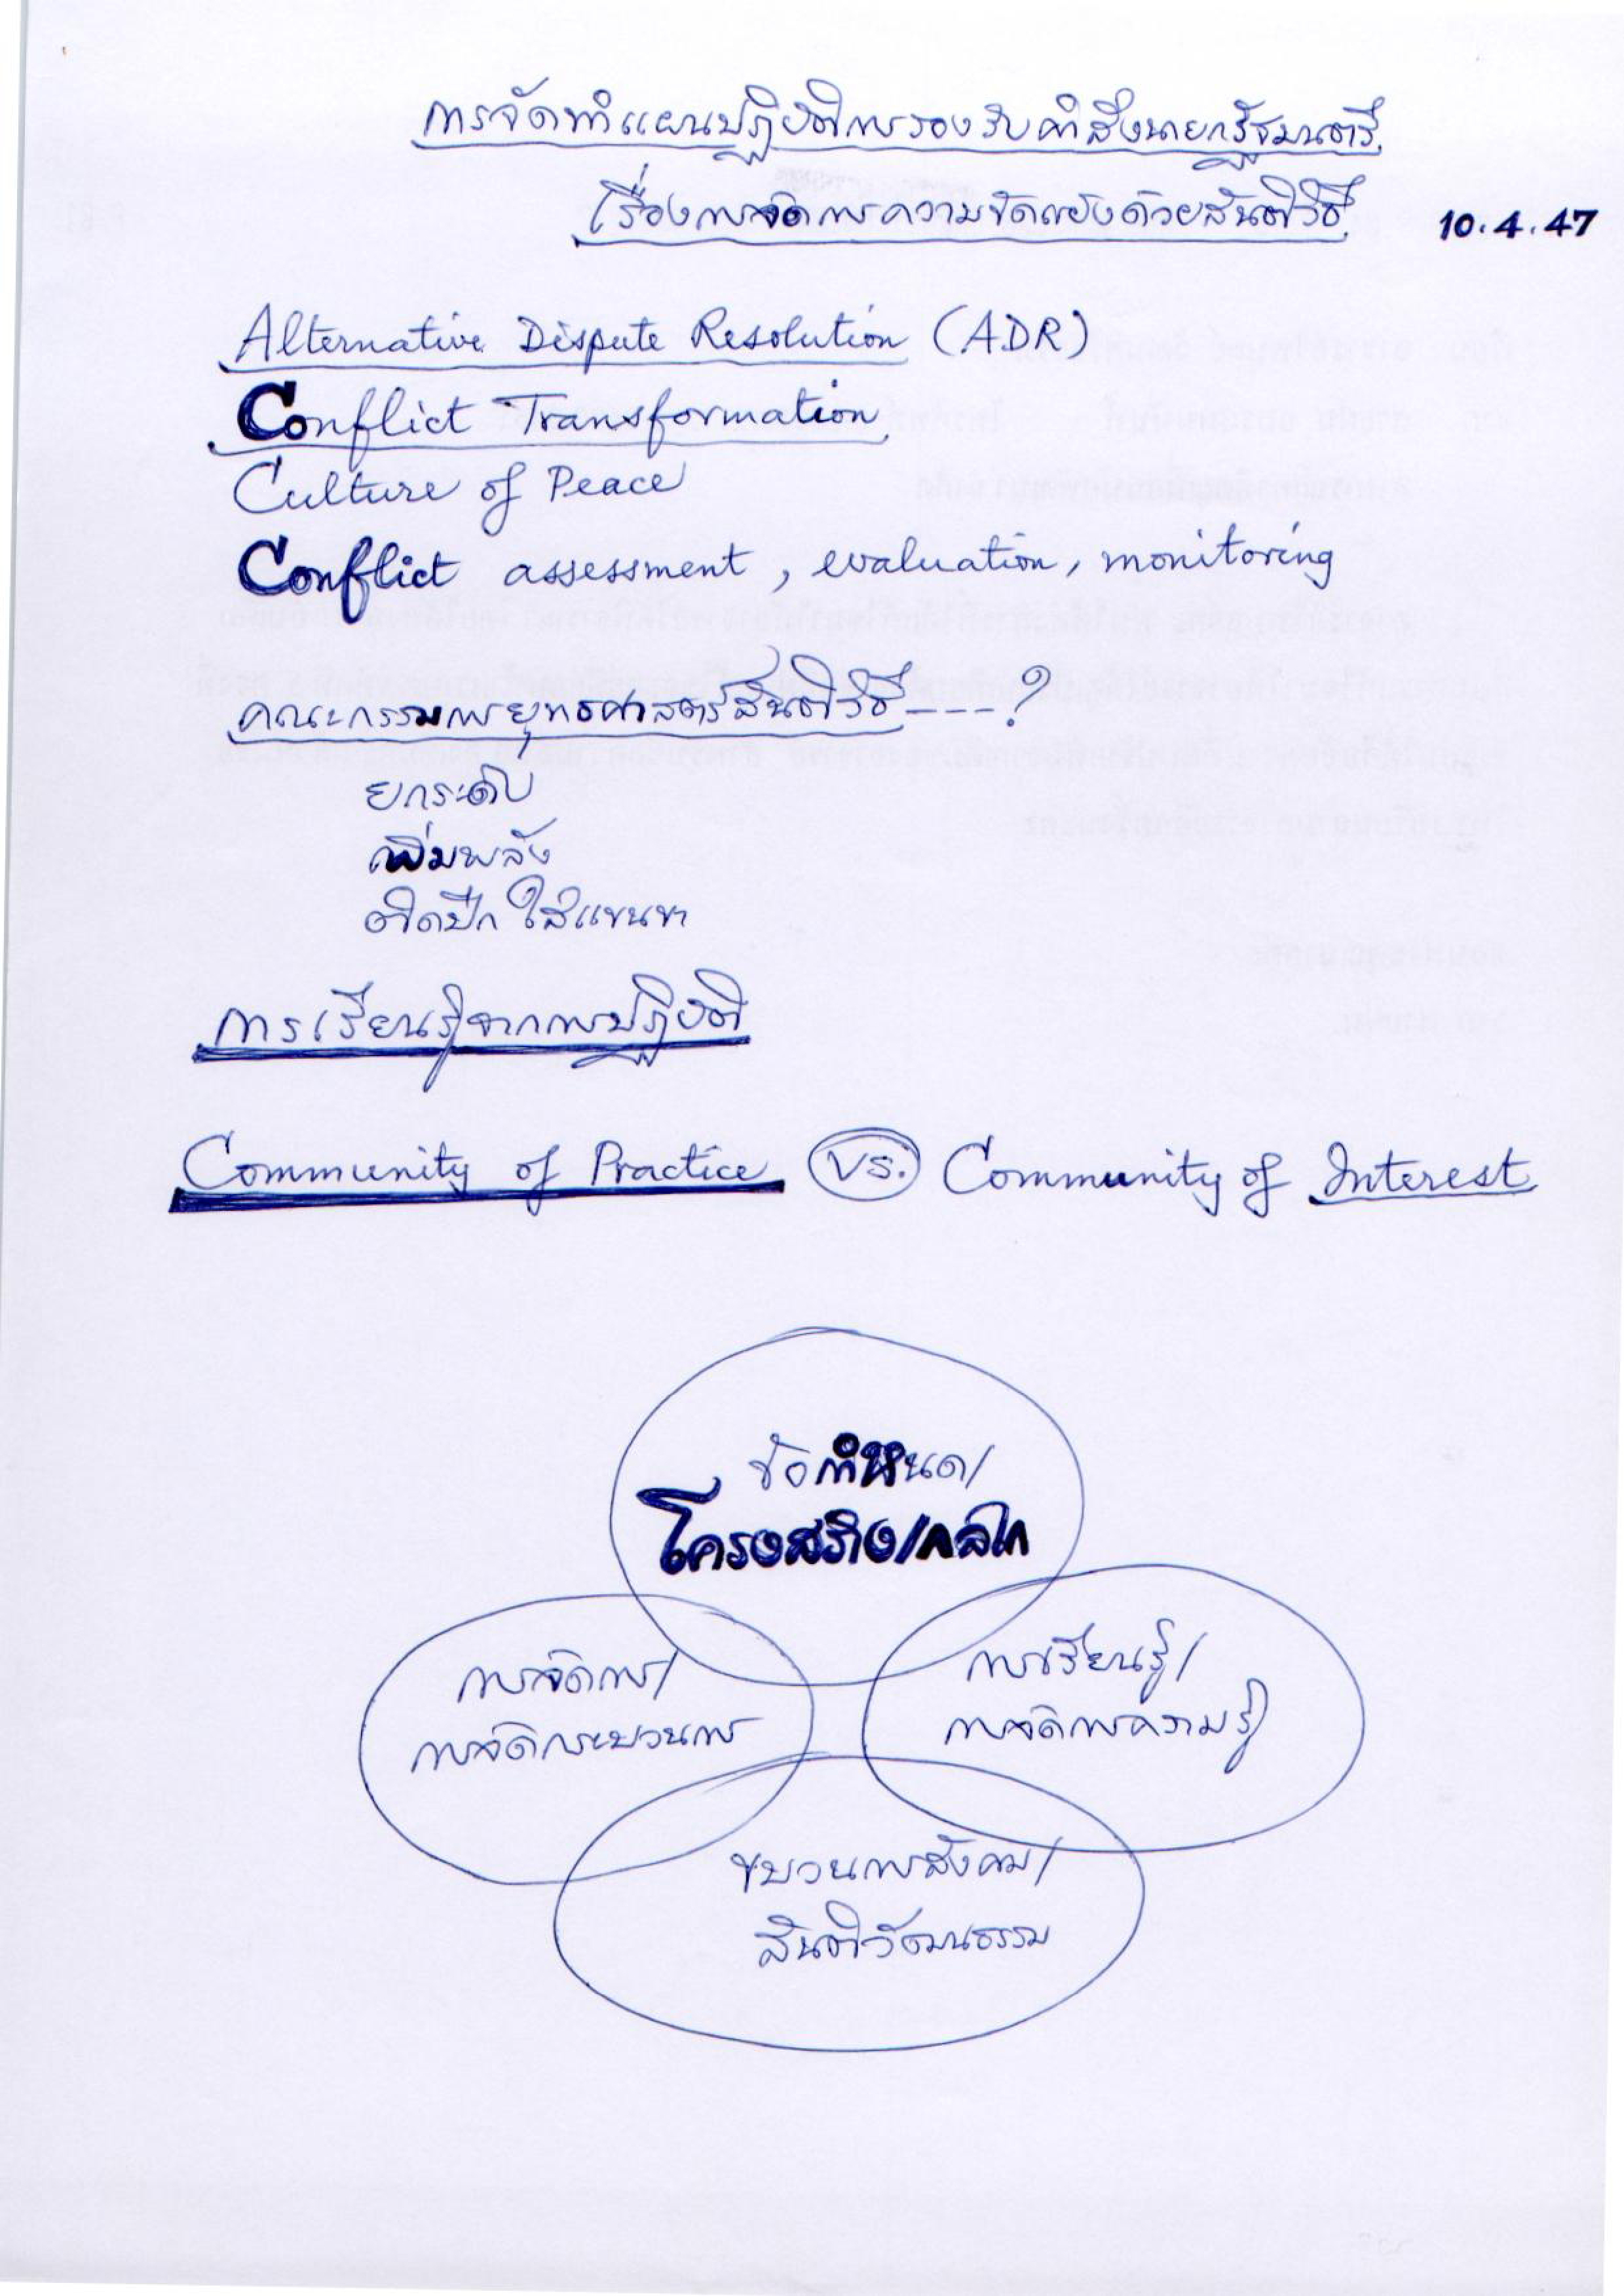 การจัดทำแผนปฏิบัติการรองรับคำสั่งนายกรัฐมนตรี
เรื่องการจัดการความขัดแย้งด้วยสันติวิธี 10.4.47
Alternative Dispute Resolution (ADR)
Conflict Transformation
Culture of Peace
Conflict assessment, evaluation, monitoring
คณะกรรมการยุทธศาสตร์สันติวิธี ---?
ยกระดับ
เพิ่มพลัง
ติดปีก ใส่แขนขา
การเรียนรู้จากการปฏิบัติ
Community of Practice vs. Community of Interest
ข้อกำหนด/
โครงสร้าง/กลไก
การจัดการ/
การจัดกระบวนการ
การเรียนรู้/
การจัดการความรู้
ขบวนการสังคม/
สันติวัฒนธรรม